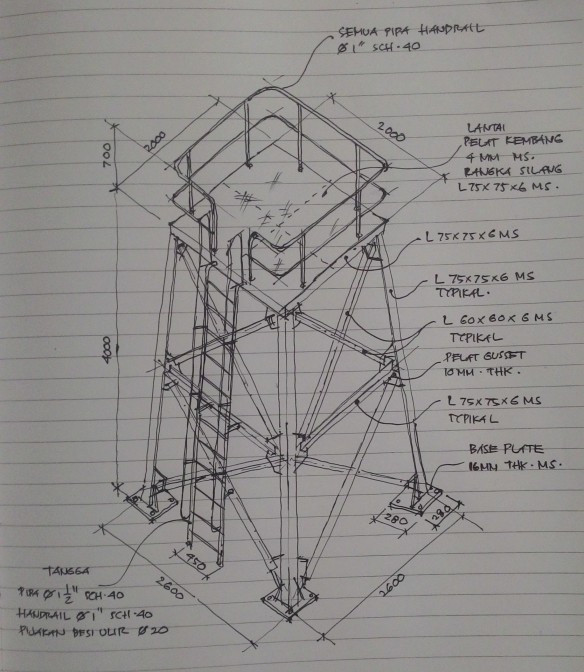 SEMUA PIPA HANDRAIL
Ø 1" SCH.40
2000
2000
700
LANTAI
PELAT KEMBANG
4 MM MS.
RANGKA SILANG
L 75 X 75 X 6 MS.
L 75X75X6 MS
L 75X75X6 MS
TYPIKAL.
L 60X60X6 MS
TYPIKAL
PELAT GUSSET
10MM. THK.
4000
L 75X75X6 MS
TYPIKAL
BASE PLATE
16MM THK. MS.
280
280
450
2600
2600
TANGGA
PIPA Ø 1 1/2" SCH.40
HANDRAIL Ø 1" SCH.40
PIJAKAN BESI ULIR Ø 20